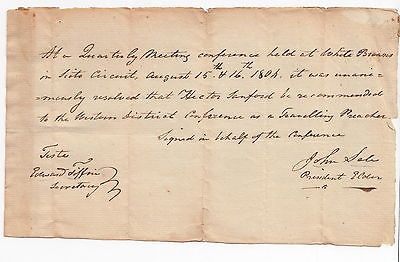 At a Quarterly Meeting conference held at White Browns
in Sioto Circuit, August 15th & 16th 1804, it was unani-
=mously resolved that Hector Sanford be recommended
to the Western District Conference as a Travelling Preacher
Signed in behalf of the conference
Teste
Edward Tiffin
Secretary
John Sale
President Elder